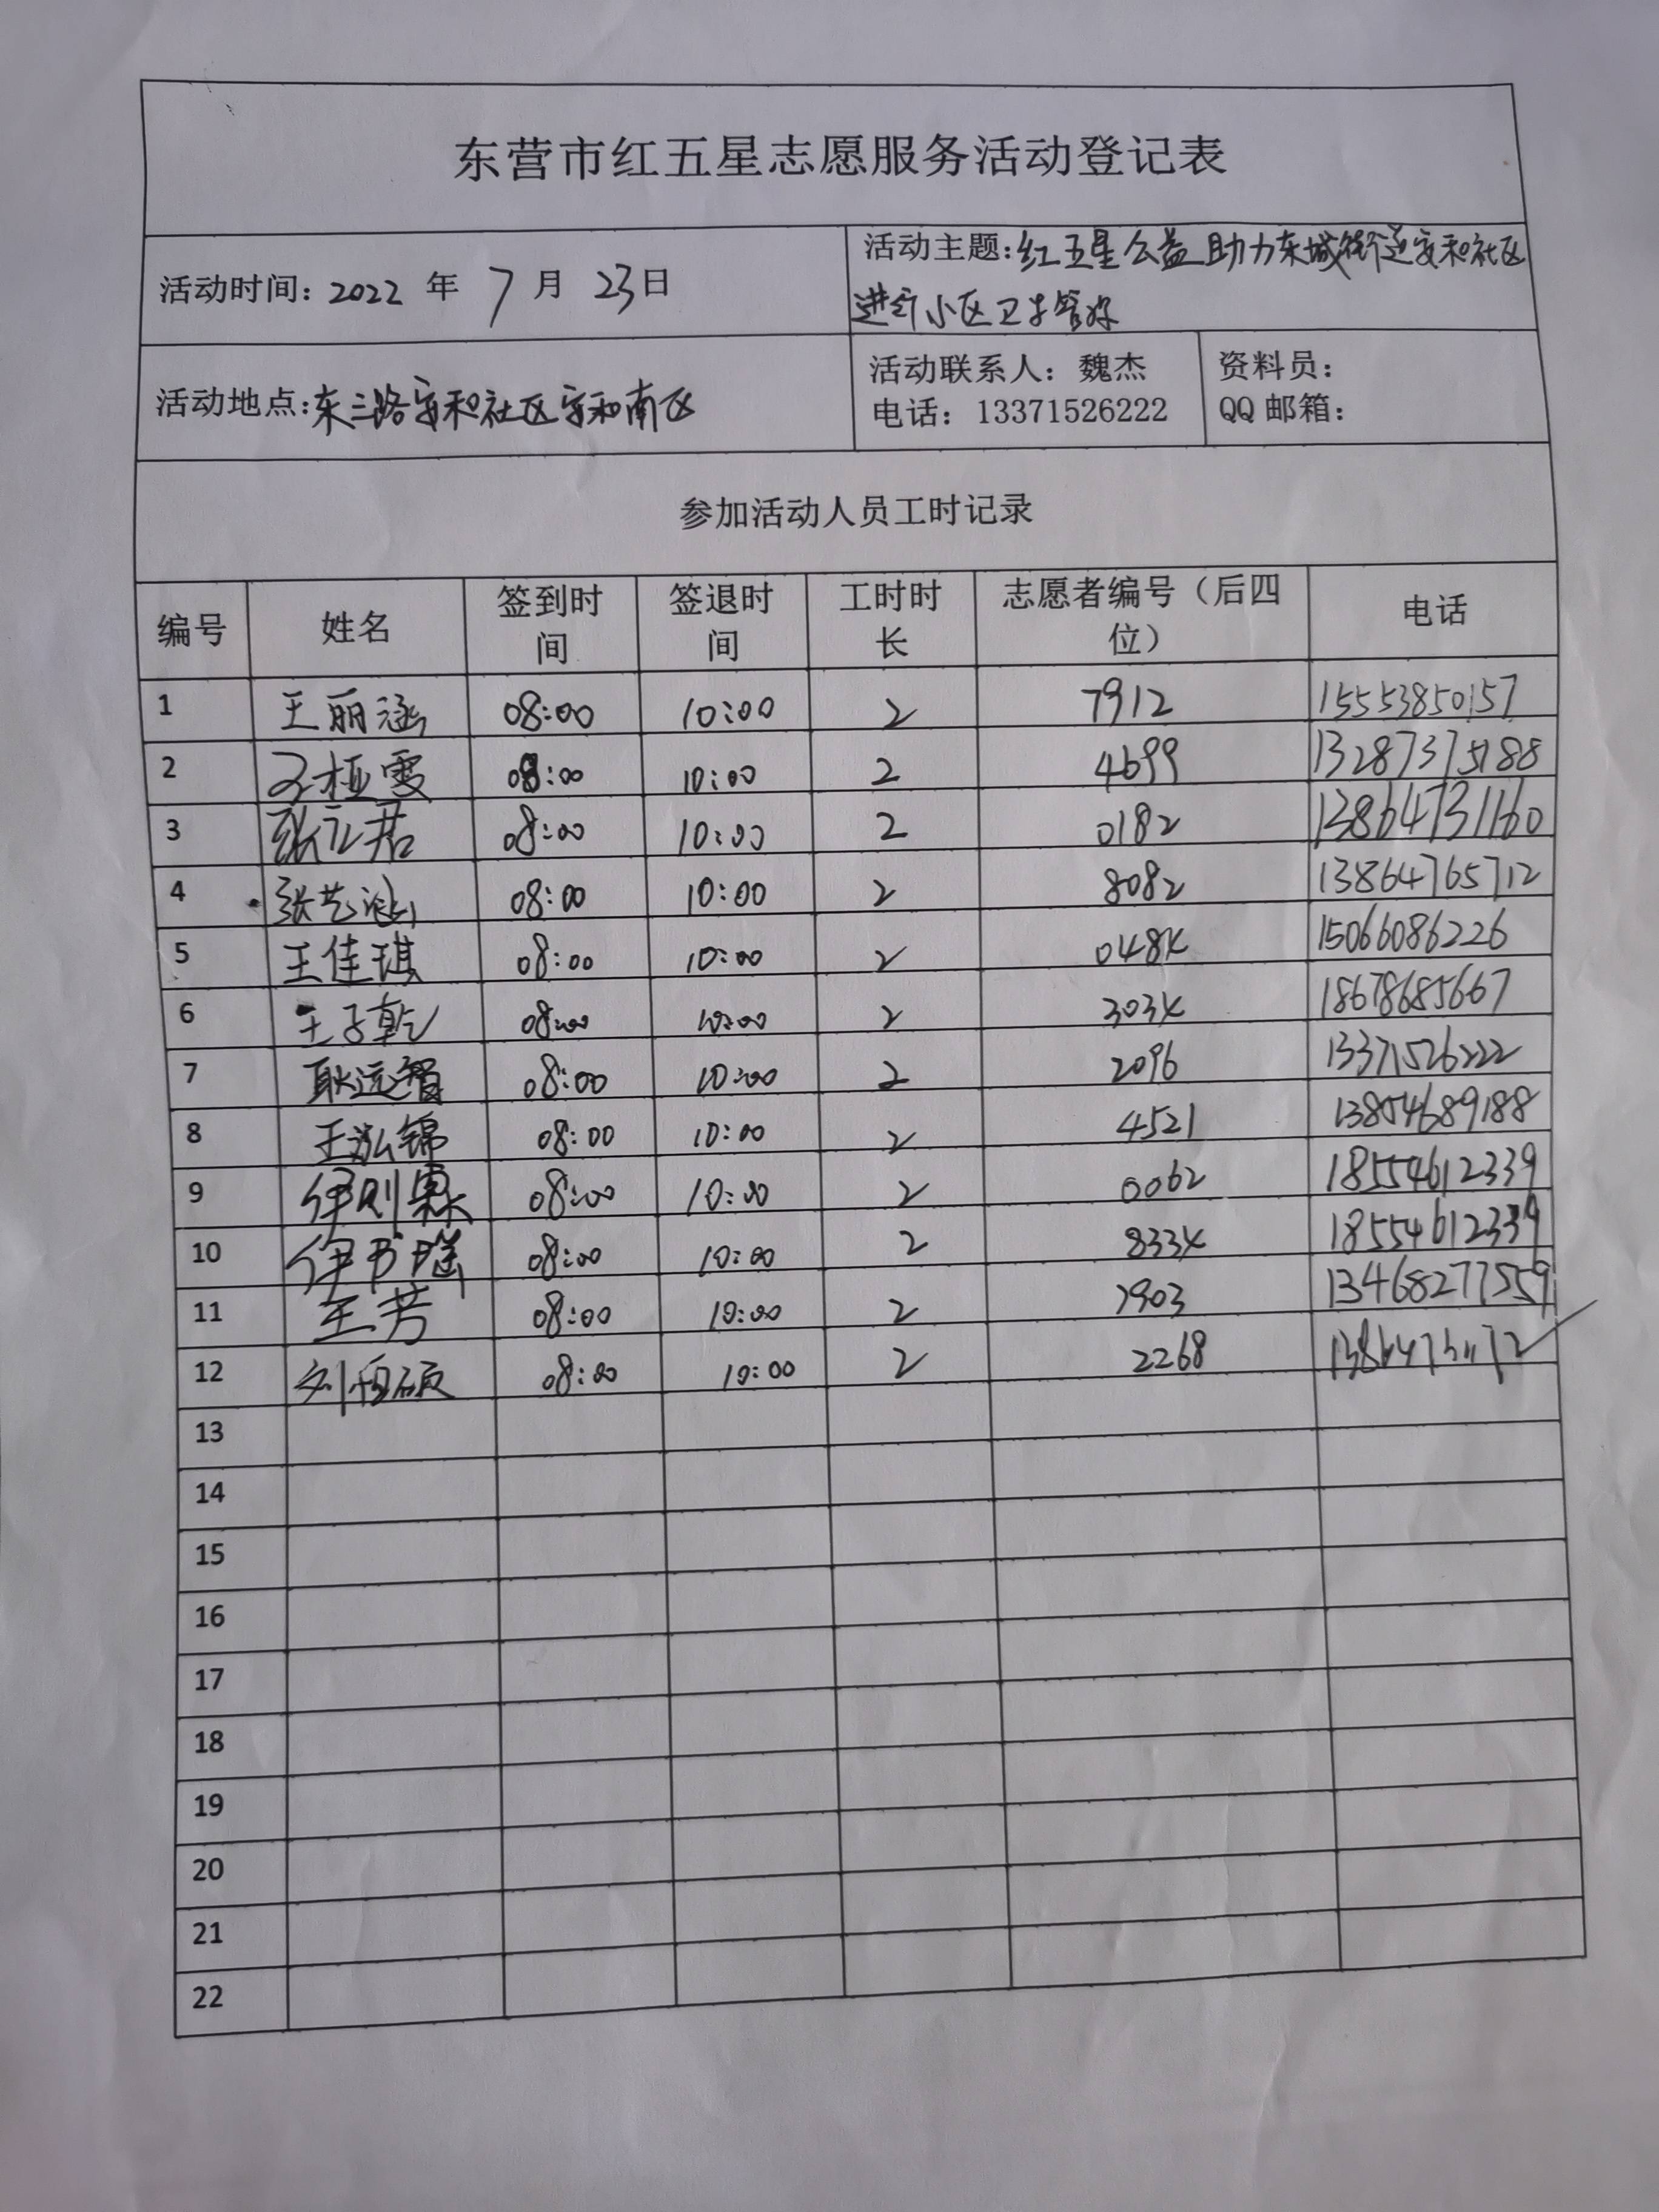 东营市红五星志愿服务活动登记表
活动时间：2022 年 7 月 23日
活动主题：红五星公益助力东城街道安和社区
进行小区卫生管护
活动地点：东三路安和社区安和南区
活动联系人：魏杰
电话：13371526222
资料员：
QQ 邮箱：
参加活动人员工时记录
编号 姓名 签到时间 签退时间 工时时长 志愿者编号（后四位） 电话
1 王丽涵 08:00 10:00 2 7912 15553850157
2 08:00 10:00 2 4699 13287375188
3 张立君 08:00 10:00 2 0182 13864731160
4 张艺涵 08:00 10:00 2 8082 13864765712
5 王佳琪 08:00 10:00 2 048X 15066086226
6 王子乾 08:00 10:00 2 303X 18678685667
7 耿远智 08:00 10:00 2 2096 13371526222
8 王泓锦 08:00 10:00 2 4521 13854689188
9 伊则霖 08:00 10:00 2 0062 18554612339
10 伊书瑶 08:00 10:00 2 833X 18554612339
11 王芳 08:00 10:00 2 7903 13468277559
12 08:00 10:00 2 2268
13
14
15
16
17
18
19
20
21
22